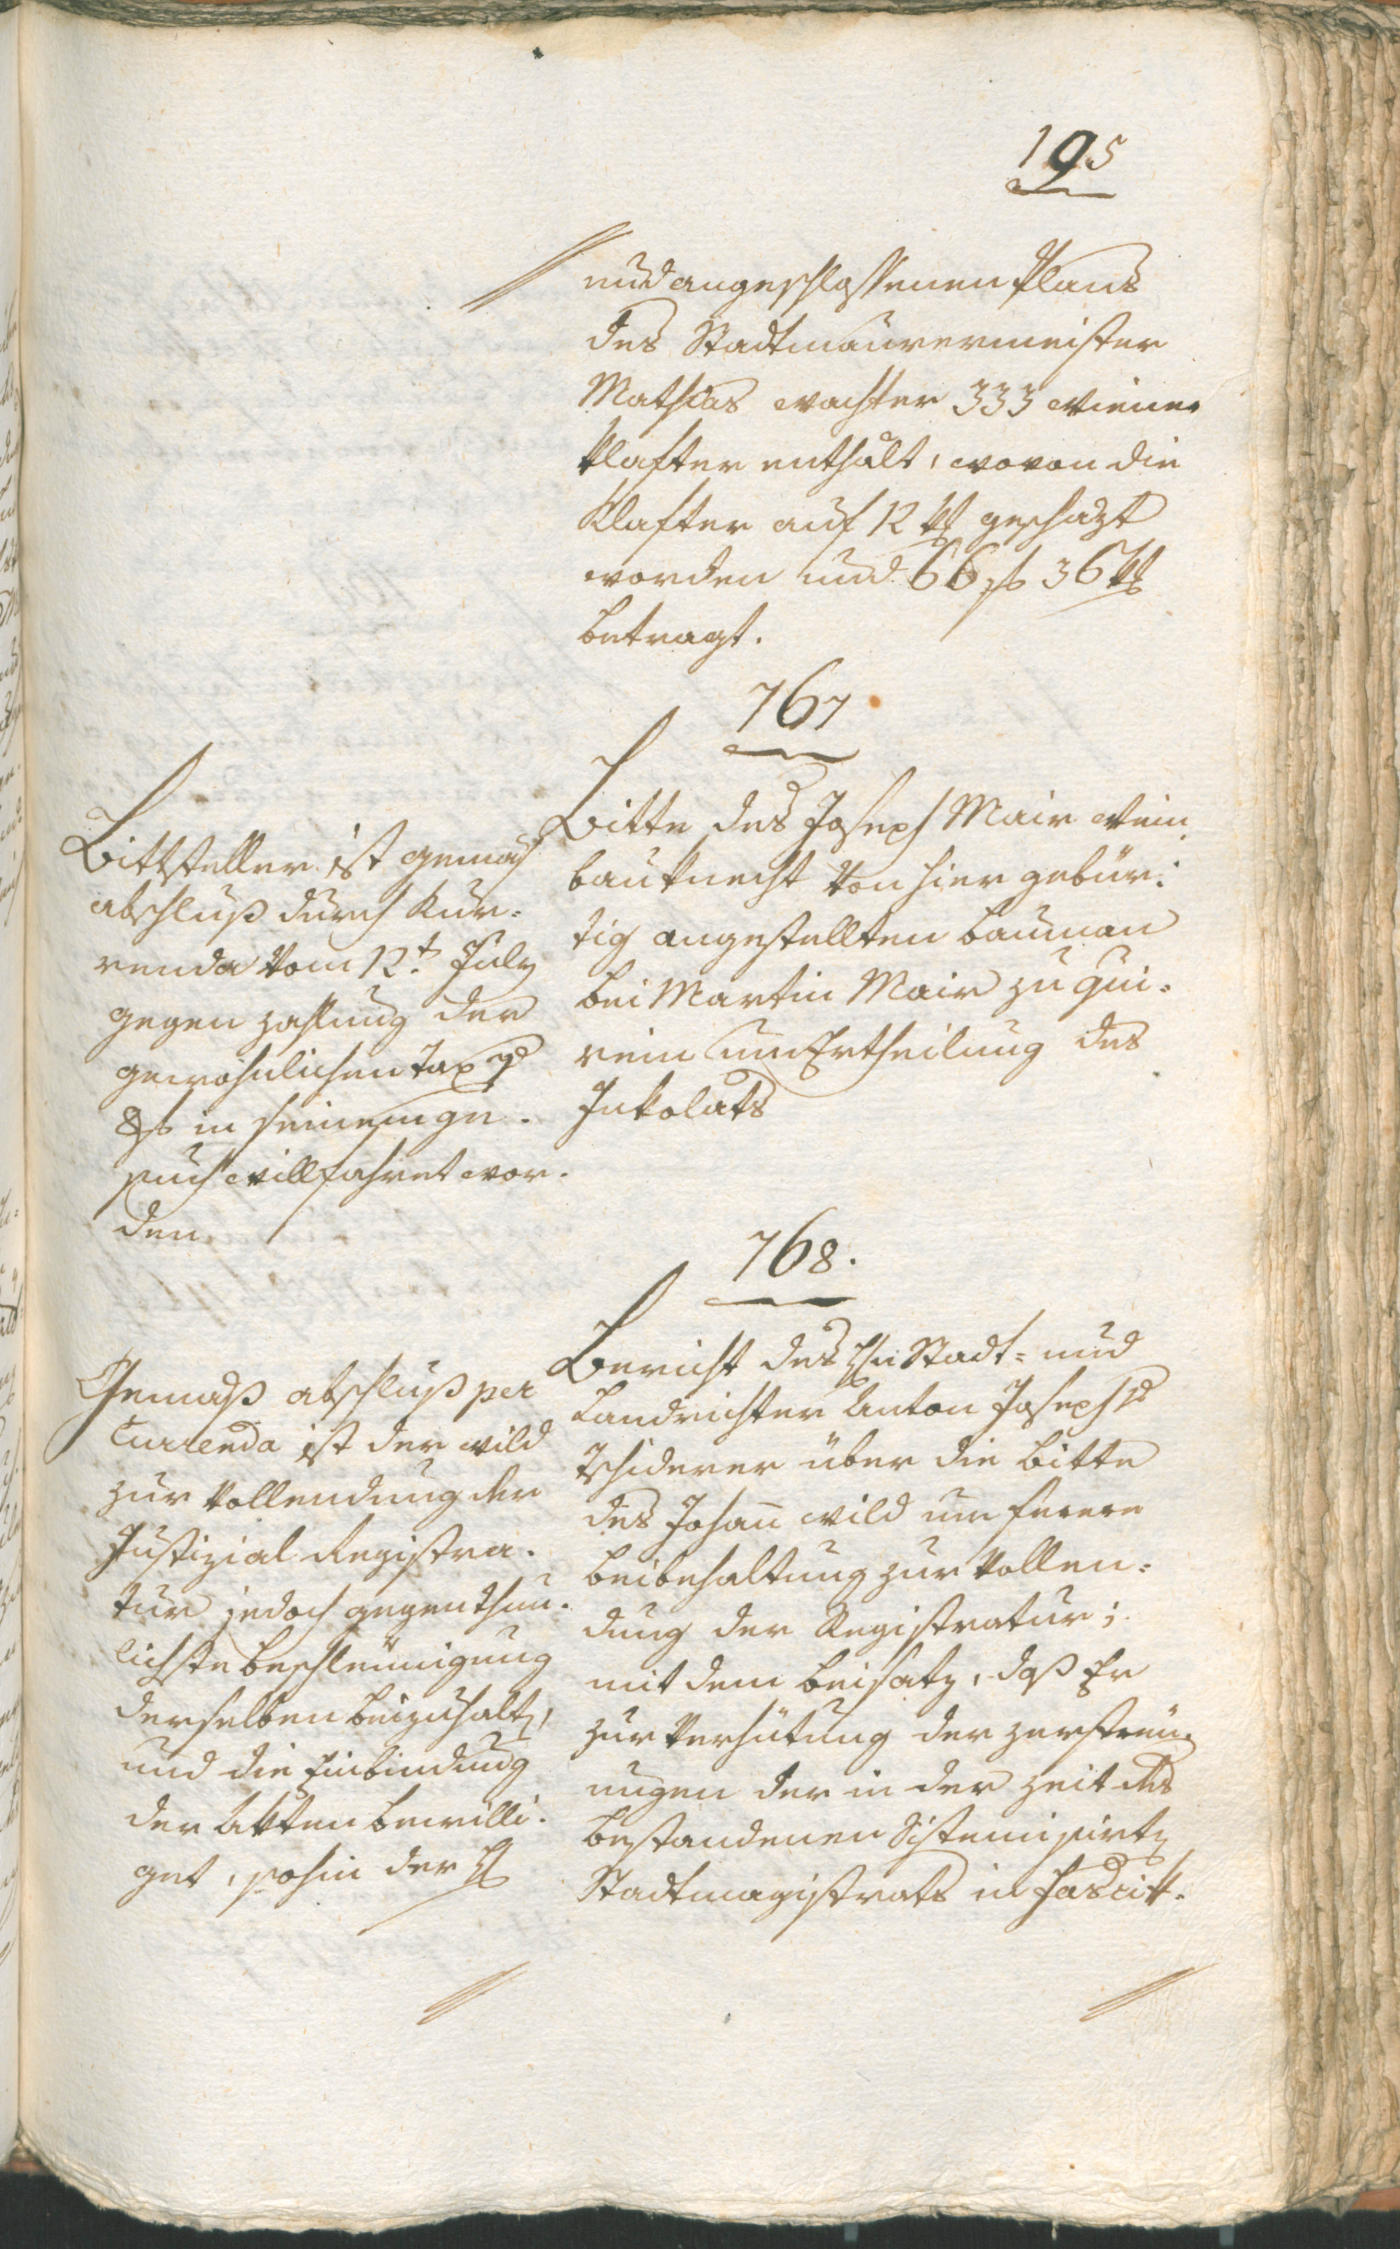 195
und angeschlossenen Plans
des Stadtmaurermeister
Mathias wachter 333 wiener
klafter enthält, wovon die
Klafter auf 12 kr geschäzt
worden und 66 fl 36 kr
betragt.
767
Bitte des Joseph Mair wein
bauknecht von hier gebür:
tig angestellten bauman
bei Martin Mair zu Qui:
rein um Ertheilung des
Inkolats
Bittsteller ist gemäß
abschluß durch Kur:
renda vom 12t. July
gegen zahlung der
gewöhnlichen Tax pr
8 fl in seinem ge:
such willfahret wor:
den
768.
Bericht des Hn Stadt- und
Landrichter Anton Joseph v
Tschiderer über die bitte
des Johann wild um fernere
beibehaltung zur vollen:
dung der Registratur;
mit dem beisatz, daß Er
zur verhütung der zerstreü:
ungen der in der zeit des
bestandenen Sistemisirten
Stadtmagistrats in Fascik:
Gemäß abschluß per
Currenda ist der wild
zur vollendung der
Justizial Registra:
tur jedoch gegen thun:
lichste beschleünigung
derselben beizuhalten,
und die Einbindung
der Akten bewilli:
get, sohin der H